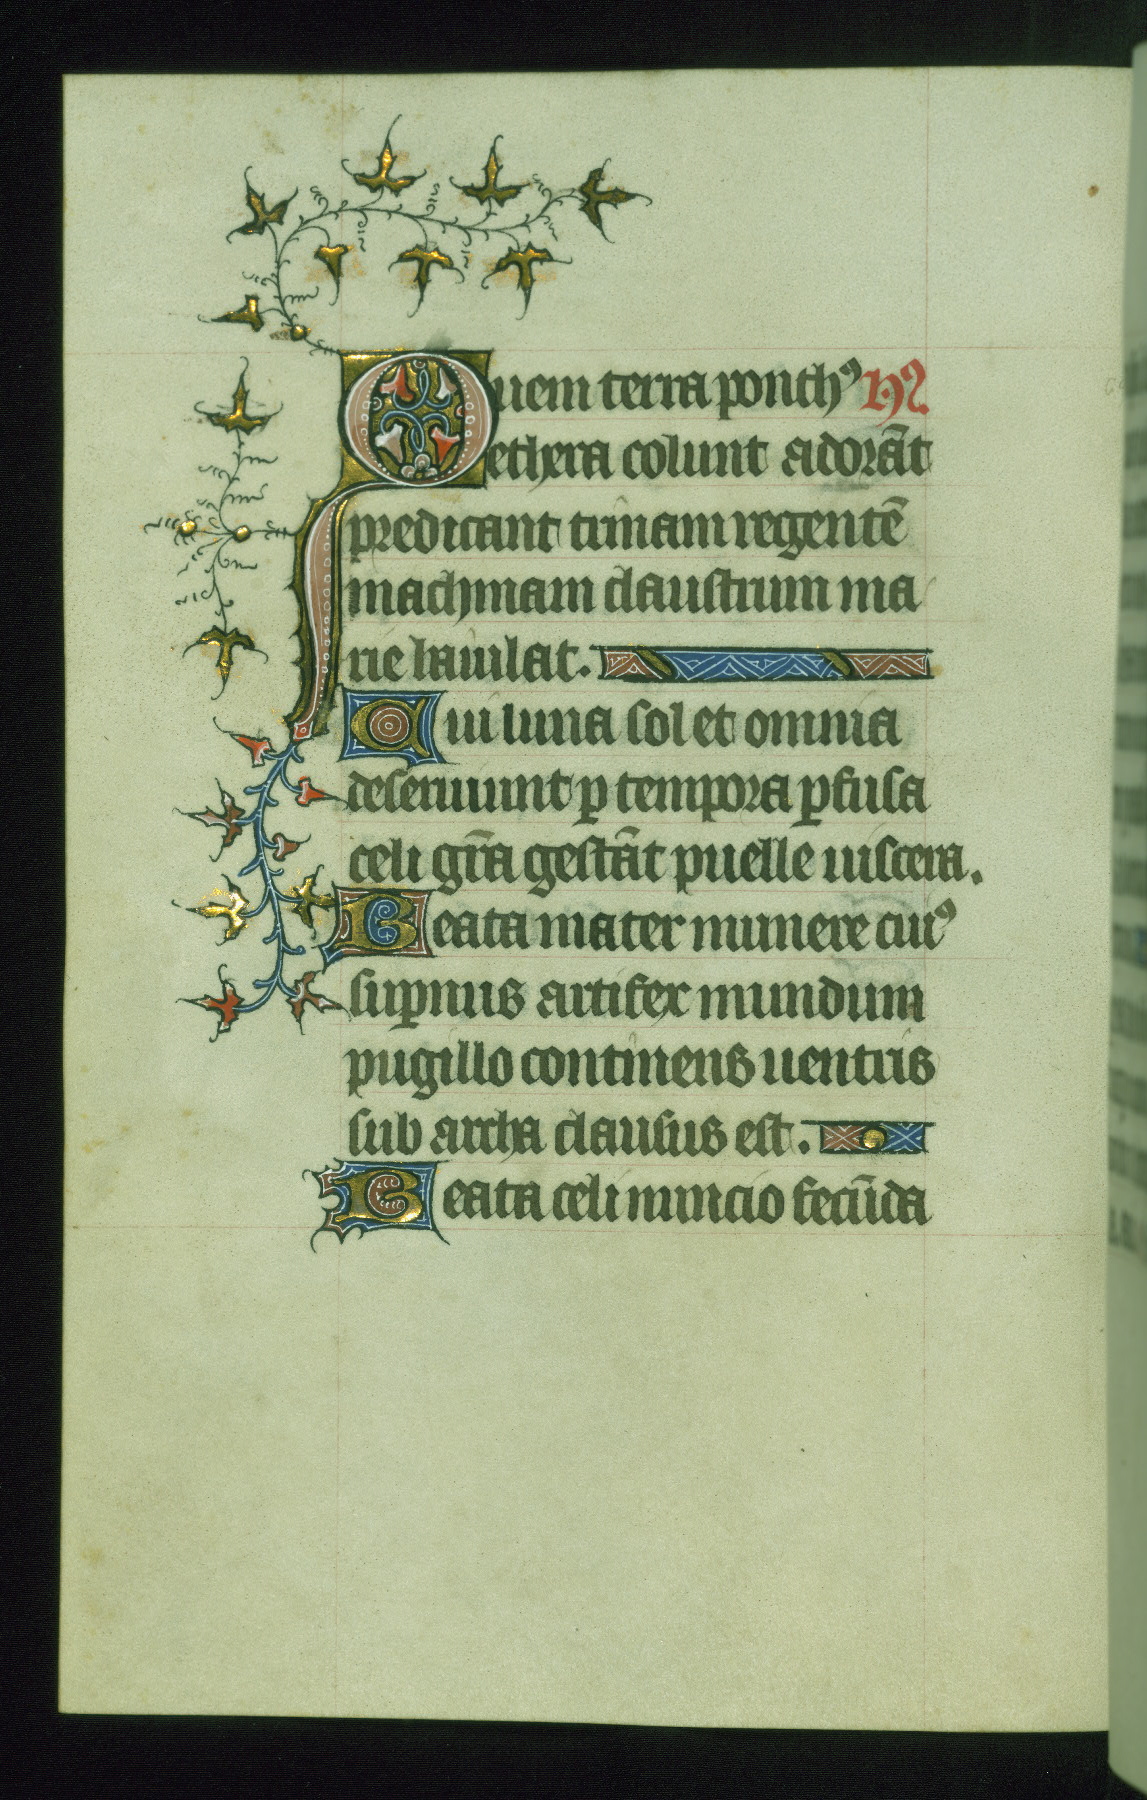 Quem terra ponthꝰ Hꝰ.
ethera colunt adorãt
predicant trinam regentẽ
machinam claustrum ma
rie baiulat.
Cui luna sol et omnia
deseruiunt p tempora pfusa
celi gr̃a gestãt puelle uiscera.
Beata mater munere cuiꝰ
supnus artifex mundum
pugillo continens uentris
sub archa clausus est.
Beata celi nuncio fecũda